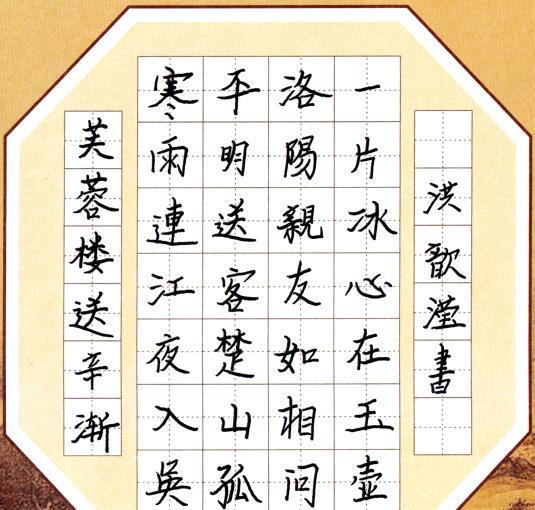 芙蓉楼送辛漸
寒雨連江夜入吳
平明送客楚山孤
洛陽親友如相问
一片冰心在玉壶
洪歆滢書